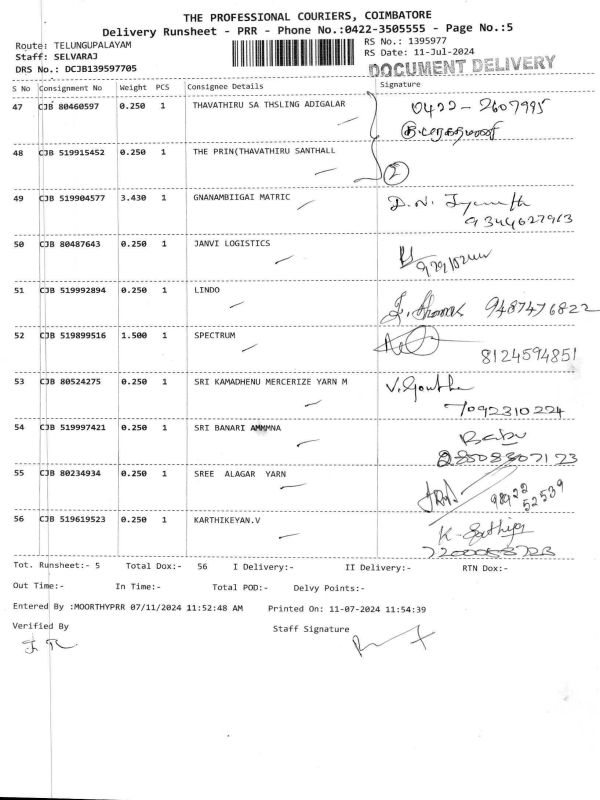 THE PROFESSIONAL COURIERS, COIMBATORE
Delivery Runsheet - PRR - Phone No.:0422-3505555 - Page No.:5
Route: TELUNGUPALAYAM
RS No.: 1395977
Staff: SELVARAJ
RS Date: 11-Jul-2024
DRS No.: DCJB139597705
DOCUMENT DELIVERY
S No Consignment No Weight PCS Consignee Details Signature
47 CJB 80460597 0.250 1 THAVATHIRU SA THSLING ADIGALAR 0422-2607995
48 CJB 519915452 0.250 1 THE PRIN(THAVATHIRU SANTHALL
2
49 CJB 519904577 3.430 1 GNANAMBIIGAI MATRIC D.N.
9344627963
50 CJB 80487643 0.250 1 JANVI LOGISTICS
51 CJB 519992894 0.250 1 LINDO 9487476822
52 CJB 519899516 1.500 1 SPECTRUM
8124594851
53 CJB 80524275 0.250 1 SRI KAMADHENU MERCERIZE YARN M V.Gowtha
7092310224
54 CJB 519997421 0.250 1 SRI BANARI AMMMNA Babu
55 CJB 80234934 0.250 1 SREE ALAGAR YARN
98922
52539
56 CJB 519619523 0.250 1 KARTHIKEYAN.V
Tot. Runsheet:- 5 Total Dox:- 56 I Delivery:- II Delivery:- RTN Dox:-
Out Time:- In Time:- Total POD:- Delvy Points:-
Entered By :MOORTHYPRR 07/11/2024 11:52:48 AM Printed On: 11-07-2024 11:54:39
Verified By Staff Signature